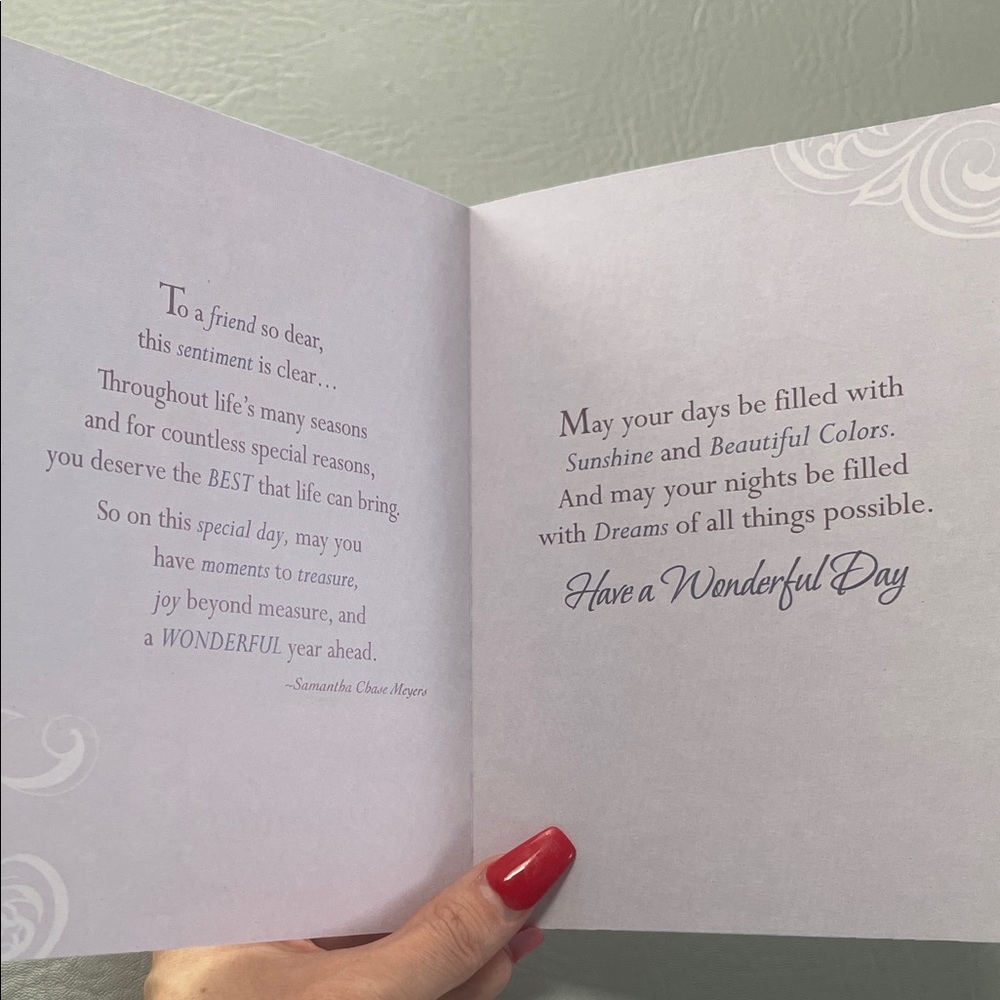 To a friend so dear,
this sentiment is clear…
Throughout life's many seasons
and for countless special reasons,
you deserve the BEST that life can bring.
So on this special day, may you
have moments to treasure,
joy beyond measure, and
a WONDERFUL year ahead.
~Samantha Chase Meyers
May your days be filled with
Sunshine and Beautiful Colors.
And may your nights be filled
with Dreams of all things possible.
Have a Wonderful Day